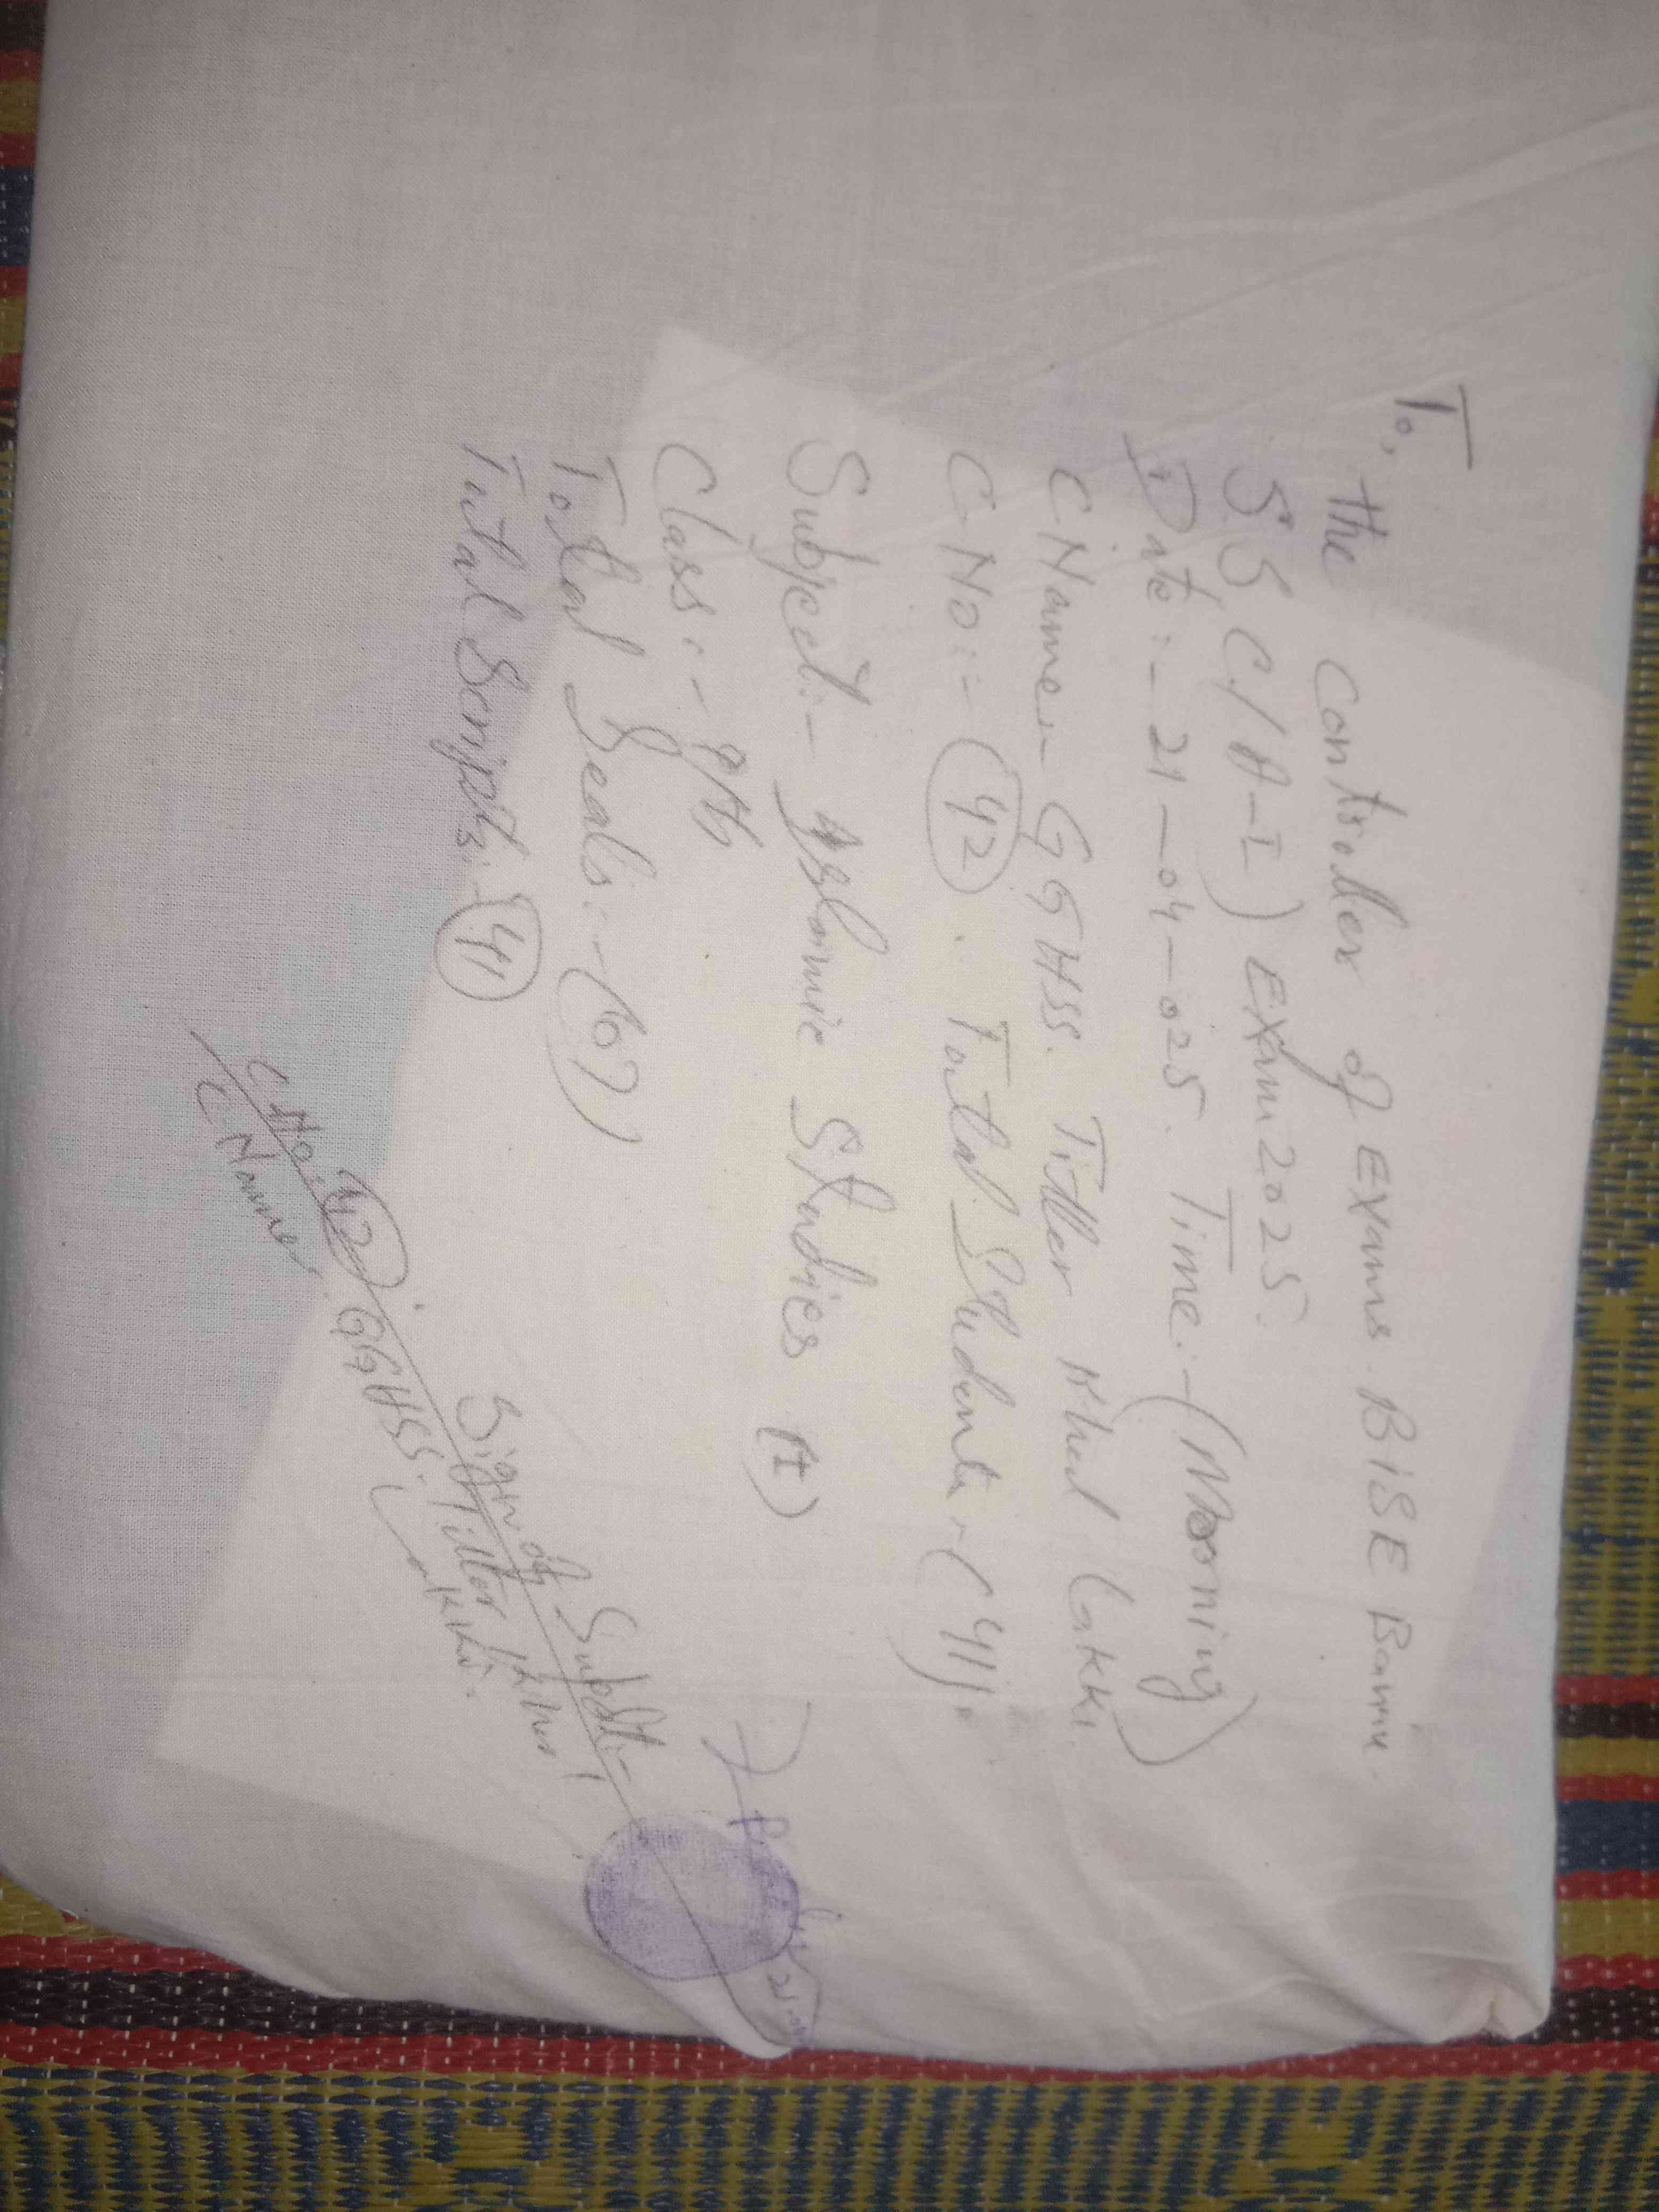 To,
the Controller of Exams BiSE Bannu.
SSC (A-I) Exam 2025.
Date:- 21-04-025. Time:- (Morning)
C Name:- GGHSS. Titter Khel Lakki.
C No:- (42). Toatal Students - (41)
Subject:- Islamic Studies (I)
Class:- 9th
Total Seals:- (6)
Tutal Scripts:- (41)
Sign of Subdt:-
C No. (42)
C Name GGHSS. Titter Khel